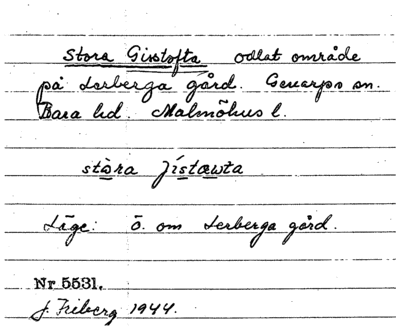 Stora Gisstofta odlat område
på Lerberga gård. Genarps sn.
Bara hd. Malmöhus l.
stòra jístɑwta
Läge: Ö. om Lerberga gård.
Nr 5531.
J. Friberg 1944.